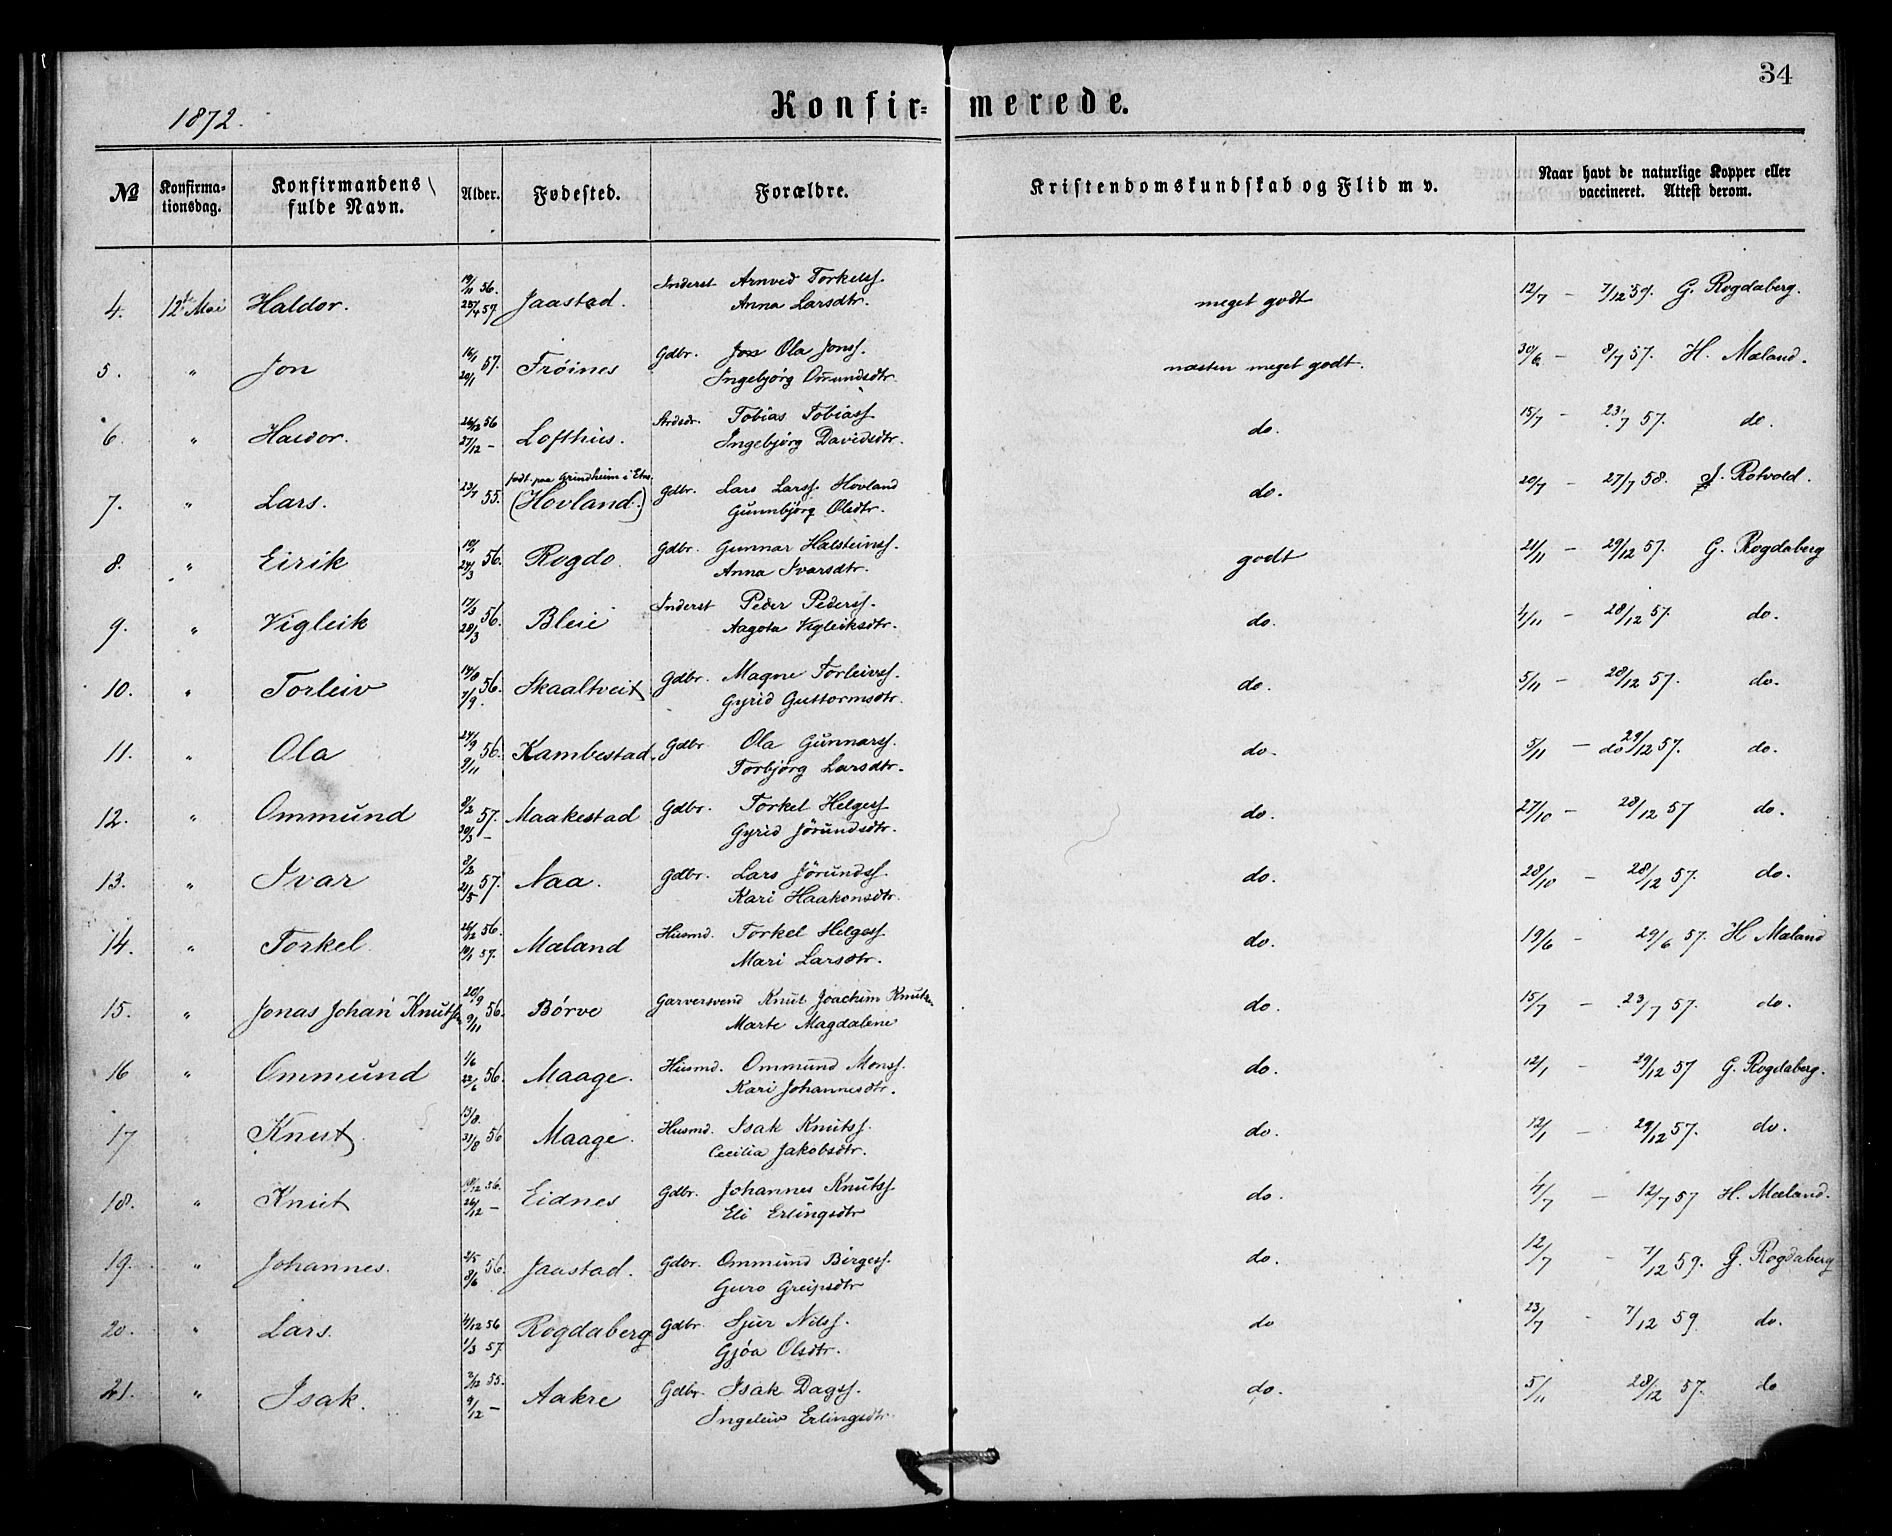 34
1872. Konfir= merede.
No Konfirma-tionsdag. Konfirmandens fulde Navn. Alder. Fødested. Forældre. Kristendomskundskab og Flid m v. Naar havt de naturlige Kopper eller vaccineret. Attest derom.
4. 12te Mai Haldor. 19/11 56. Jaastad. Inderst Arnved Torkelss. meget godt 12/7 — 7/12 59. G. Rogdaberg.
25/4 57. Anna Larsdtr.
5. " Jon 16/1 57. Frøines Gdbr. Jon Ola Jonss. næsten meget godt. 30/6 — 8/7 57. H. Mæland.
20/1 Ingebjørg Omundsdtr.
6. " Haldor. 26/12 56 Lofthus. Tobias Tobiass. do. 15/7 — 23/7 57. do.
27/12 — Ingebjørg Davidsdtr.
7. " Lars. 23/7 55. født paa Grindheim i Etne. (Hovland.) Gdbr. Lars Larss. Hovland do. 20/7 — 27/7 58. J. Rotvold.
Gunnbjørg Olsdtr.
8. " Eirik 56. Rogdo. Gdbr. Gunnar Halsteinss. godt 21/11 — 29/12 57. G. Rogdaberg
24/3 Anna Ivarsdtr.
9. " Vigleik 17/3 56. Bleie Inderst Peder Pederss. do. 4/11 — 28/12 57. do.
28/3 Aagota Vigleiksdtr.
10. " Torleiv 14/8 56. Skaaltveit Gdbr. Magne Torleivss. do. 5/11 — 28/12 57. do.
7/9. Gyrid Guttormsdtr.
11. " Ola 24/9 56. Kambestad. Gdbr Ola Gunnarss. do. 5/11 — do 29/12 57. do.
9/11 Torbjørg Larsdtr.
12. " Ommund 8/2 57. Maakestad Gdbr. Torkel Helgess. do. 27/10 — 28/12 57 do.
20/3 — Gyrid Jörundsdtr.
13. " Ivar 8/2 57. Naa. Gdbr. Lars Jörundss. do. 28/10 — 28/12 57. do.
21/5 Kari Haakonsdtr.
14. " Torkel 26/12 56. Mæland Husmd. Torkel Helgess do. 19/6 — 29/6 57. H Mæland
57. Mari Larsdtr.
15. " Jonas Johan Knutss 20/9 56. Børve Garversvend Knut Joachim Knuts do. 15/7 — 23/7 57. do.
9/11 Marte Magdalene
16 " Ommund 1/6 56. Maage. Husmd. Ommund Monss. do. 12/1 — 29/12 57 G. Rogdaberg.
22/6 Kari Johannesdtr.
17 " Knut 13/8. 56 Maage. Husmd. Isak Knutss. do. 12/1 — 29/12 57. do.
31/8 Cecilia Jakobsdtr.
18. " Knut 18/12 56. Eidnes Gdbr. Johannes Knutss. do. 4/7 — 12/7 57 H. Mæland.
26/12 — Eli Erlingsdtr
19. " Johannes. 2/5 56. Jaastad. Gdbr. Ommund Børgess. do. 12/7 — 7/12 59. G. Rogdaberg
8/6 Guro Greipsdtr
20. " Lars. 4/12 56 Rogdaberg Gdbr. Sjur Nilss. do 23/7 - 7/12 59 do.
1/3 57. Gjøa Olsdtr.
21. " Isak. 2/12 55. Aakre Gdbr. Isak Dagss. do. 5/11 28/12 57. do
9/12 — Ingeleiv Erlingsdtr.